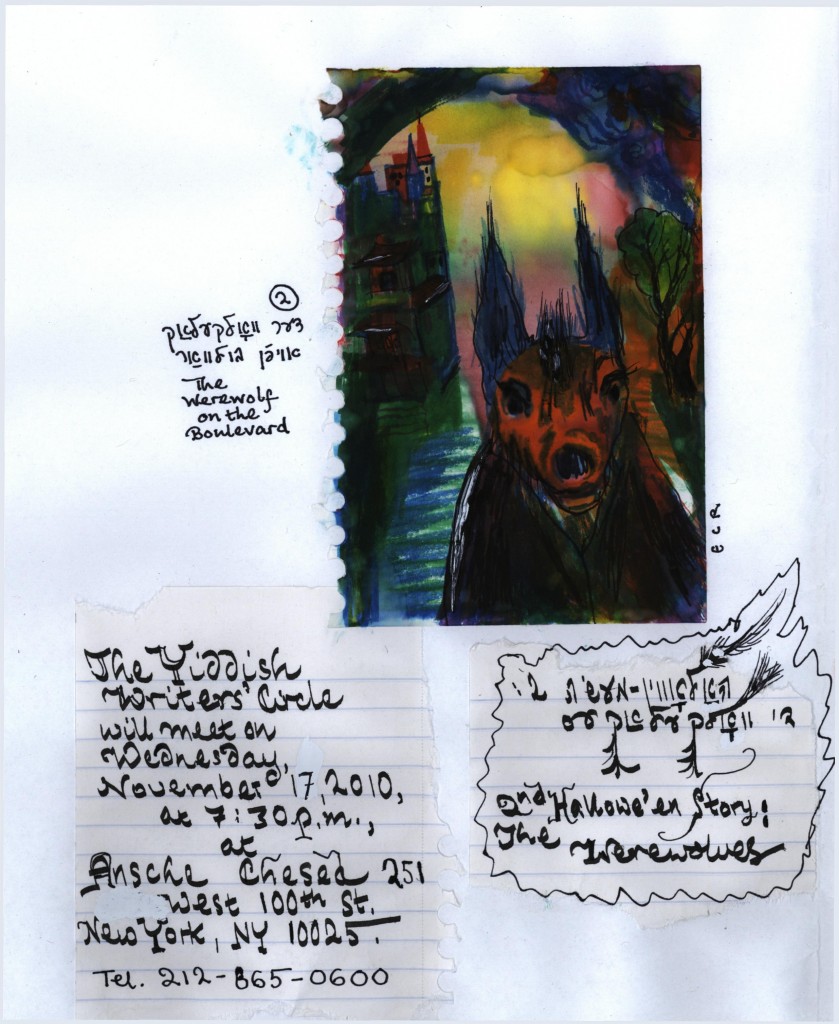 ②
דער וואָלקעלאַק
אויפֿן בולוואַר
The
Werewolf
on the
Boulevard
ECR
The Yiddish
Writers' Circle
will meet on
Wednesday,
November 17, 2010,
at 7:30 p.m.,
at
Ansche Chesed 251
West 100th St.
New York, NY 10025.
Tel. 212-865-0600
האַלאָווין-מעשׂיות 2:
די וואָלקעלאַקעס
2nd Hallowe'en Story:
The Werewolves